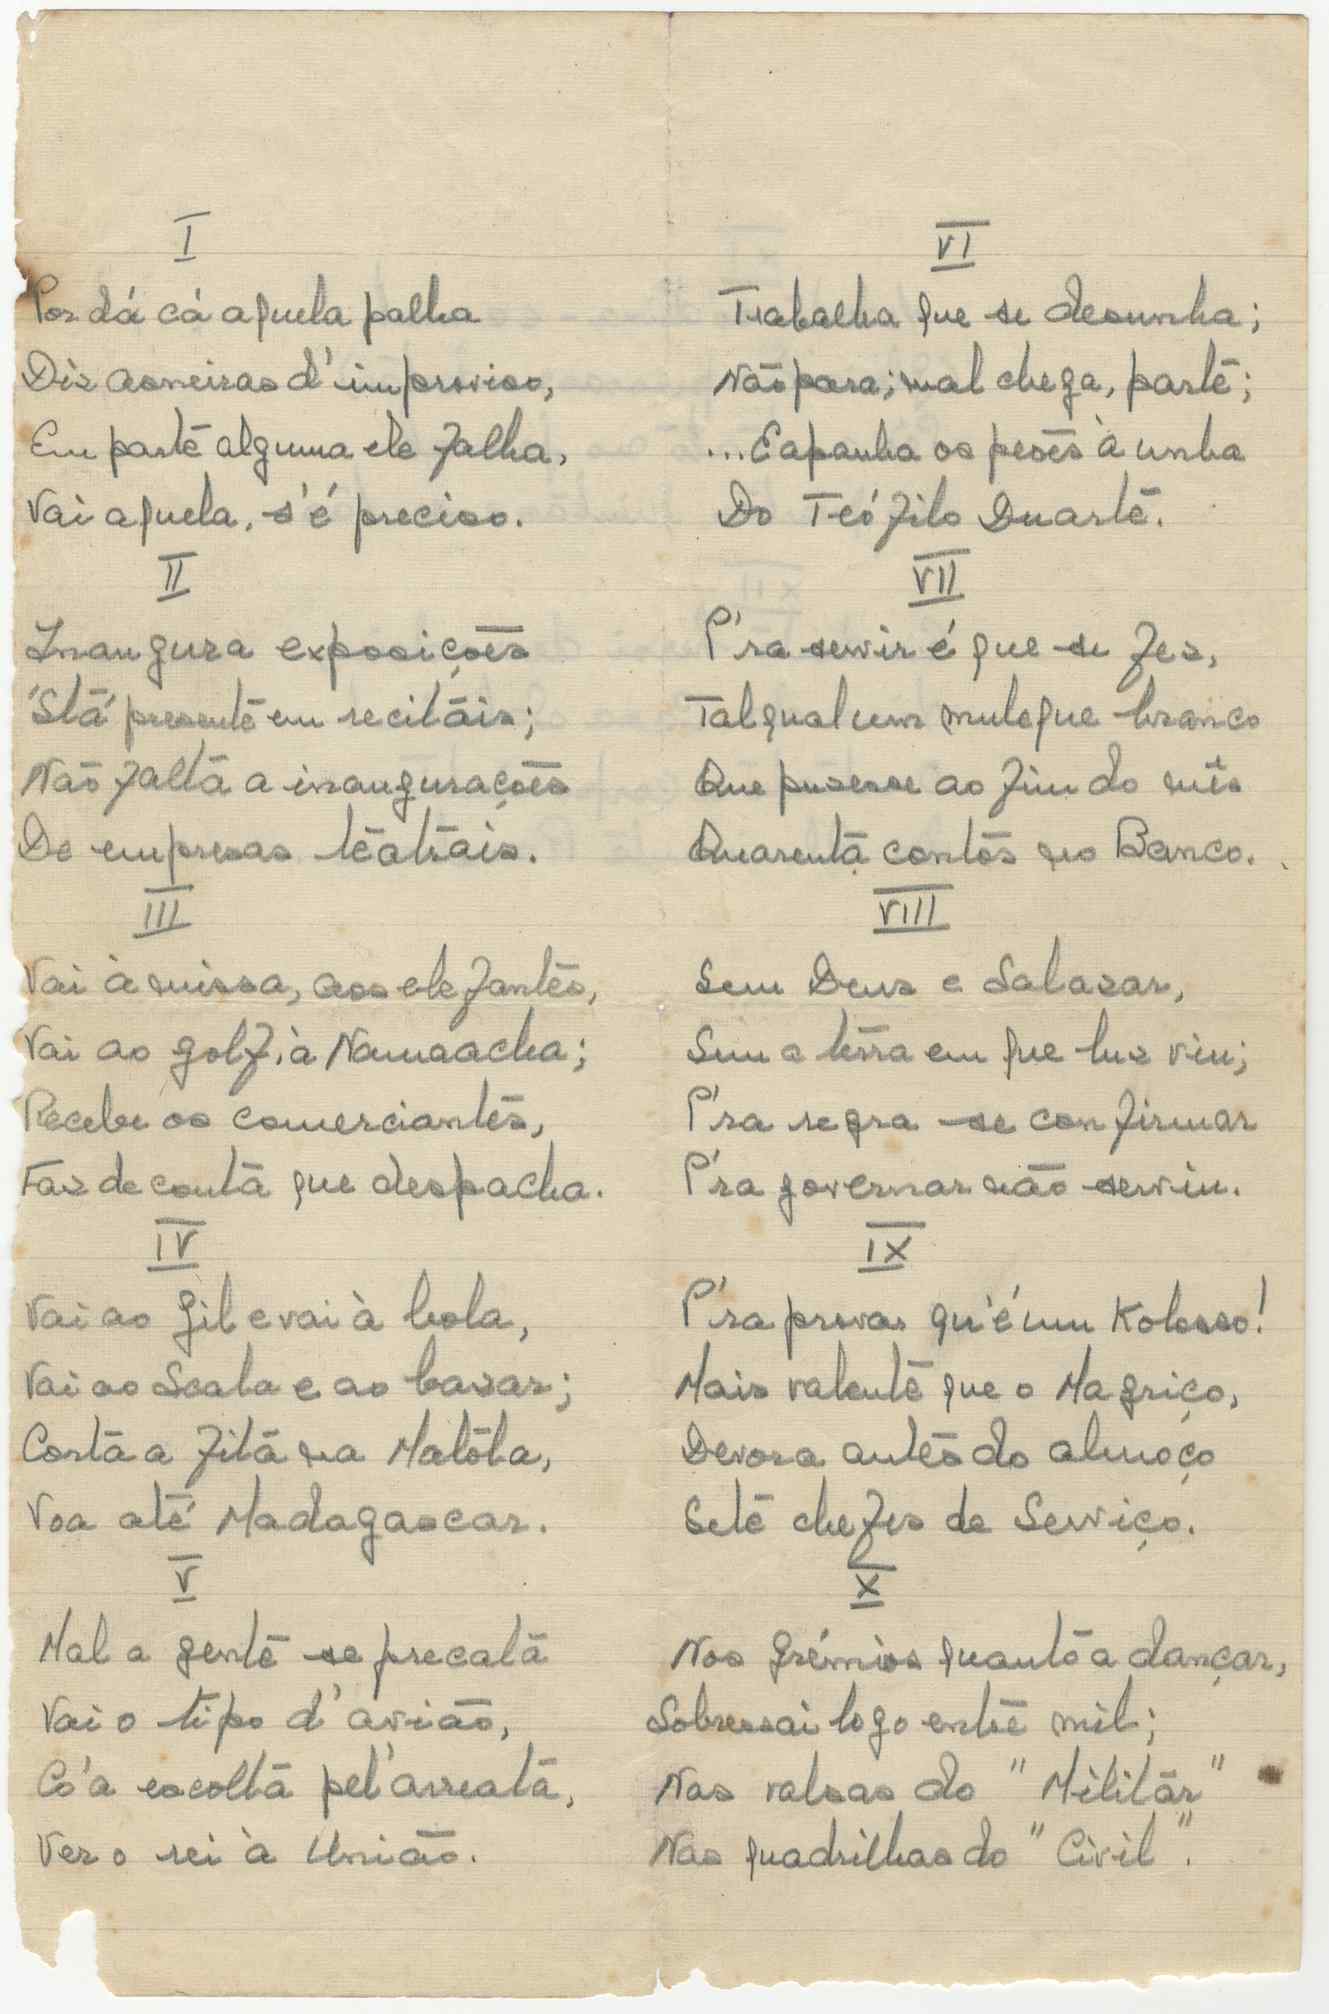 I
Por dá cá aquela palha
Diz asneiras d'improviso,
Em parte alguma ele falha,
Vai aquela, s'é preciso.
II
Inaugura exposições
'Stá presente em recitais;
Não falta a inaugurações
De empresas teatrais.
III
Vai à missa, aos elefantes,
Vai ao golf, à Namaacha;
Recebe os comerciantes,
Faz de conta que despacha.
IV
Vai ao Gil e vai à bola,
Vai ao Scala e ao bazar;
Corta a fita na Matola,
Voa até Madagascar.
V
Mal a gente se precata
Vai o tipo d'avião,
Co'a escolta pel'arreata,
Ver o rei à União.
VI
Trabalha que se desunha;
Não para; mal chega, parte;
...E apanha os pesos à unha
Do Teófilo Duarte.
VII
P'ra servir é que se fez,
Tal qual um muleque branco
Que pusesse ao fim do mês
Quarenta contos no Banco.
VIII
Sem Deus e Salazar,
Sem a terra em que luz viu;
P'ra regra se confirmar
P'ra governar não serviu.
IX
P'ra provar qu'é um Kolosso!
Mais valente que o Magriço,
Devora antes do almoço
Sete chefes de Serviço.
X
Nos Grémios quanto a dançar,
Sobressai logo entre mil;
Nas valsas do "Militar"
Nas quadrilhas do "Civil".